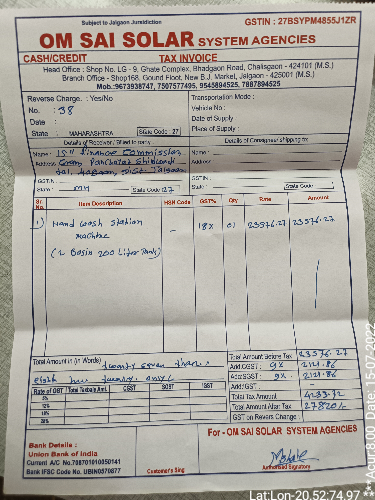 Subject to Jalgaon Jurisdiction
GSTIN : 27BSYPM4855J1ZR
OM SAI SOLAR SYSTEM AGENCIES
CASH/CREDIT TAX INVOICE
Head Office : Shop No. LG - 9, Ghate Complex, Bhadgaon Road, Chalisgaon - 424101 (M.S.)
Branch Office - Shop168, Gound Floot, New B.J. Market, Jalgaon - 425001 (M.S.)
Mob.:9673938747, 7507577495, 9545894525, 7887894525
Reverse Charge. : Yes/No
Transportation Mode :
No. : 38
Vehicle No :
Date :
Date of Supply
State : MAHARASHTRA State Code : 27
Place of Supply :
Details of Receiver / Billed to many
Details of Consignee shipping to:
Name : 15th Finance Commission
Name :
Address Gram Panchayat
Address
GSTIN :
GSTIN :
State : MH State Code 27
State : State Code
Sr. No. Item Description HSN Code GST% Qty Rate Amount
1) Hand wash station machine - 18% 01 23576.27 23576.27
(2 Basin 200 Liter Tank)
Total Amount in (in Words)
twenty seven thou.
eight hun twenty only/
Total Amount Before Tax 23576.27
Add:CGST : 9% 2121.86
Add:SGST : 9% 2121.86
Add:IGST : -
Total Tax Amount 4243.72
Total Amount After Tax 27820/-
GST on Revers Change :
Rate of GST Total Taxable Amt. CGST SGST IGST
5%
12%
18%
28%
For - OM SAI SOLAR SYSTEM AGENCIES
Bank Details :
Union Bank of India
Current A/C No.708701010050141
Bank IFSC Code No. UBIN0570877
Customer's Sing
Authorised Signatory
Date :15-07-2022
Lat:Lon-20.52:74.97